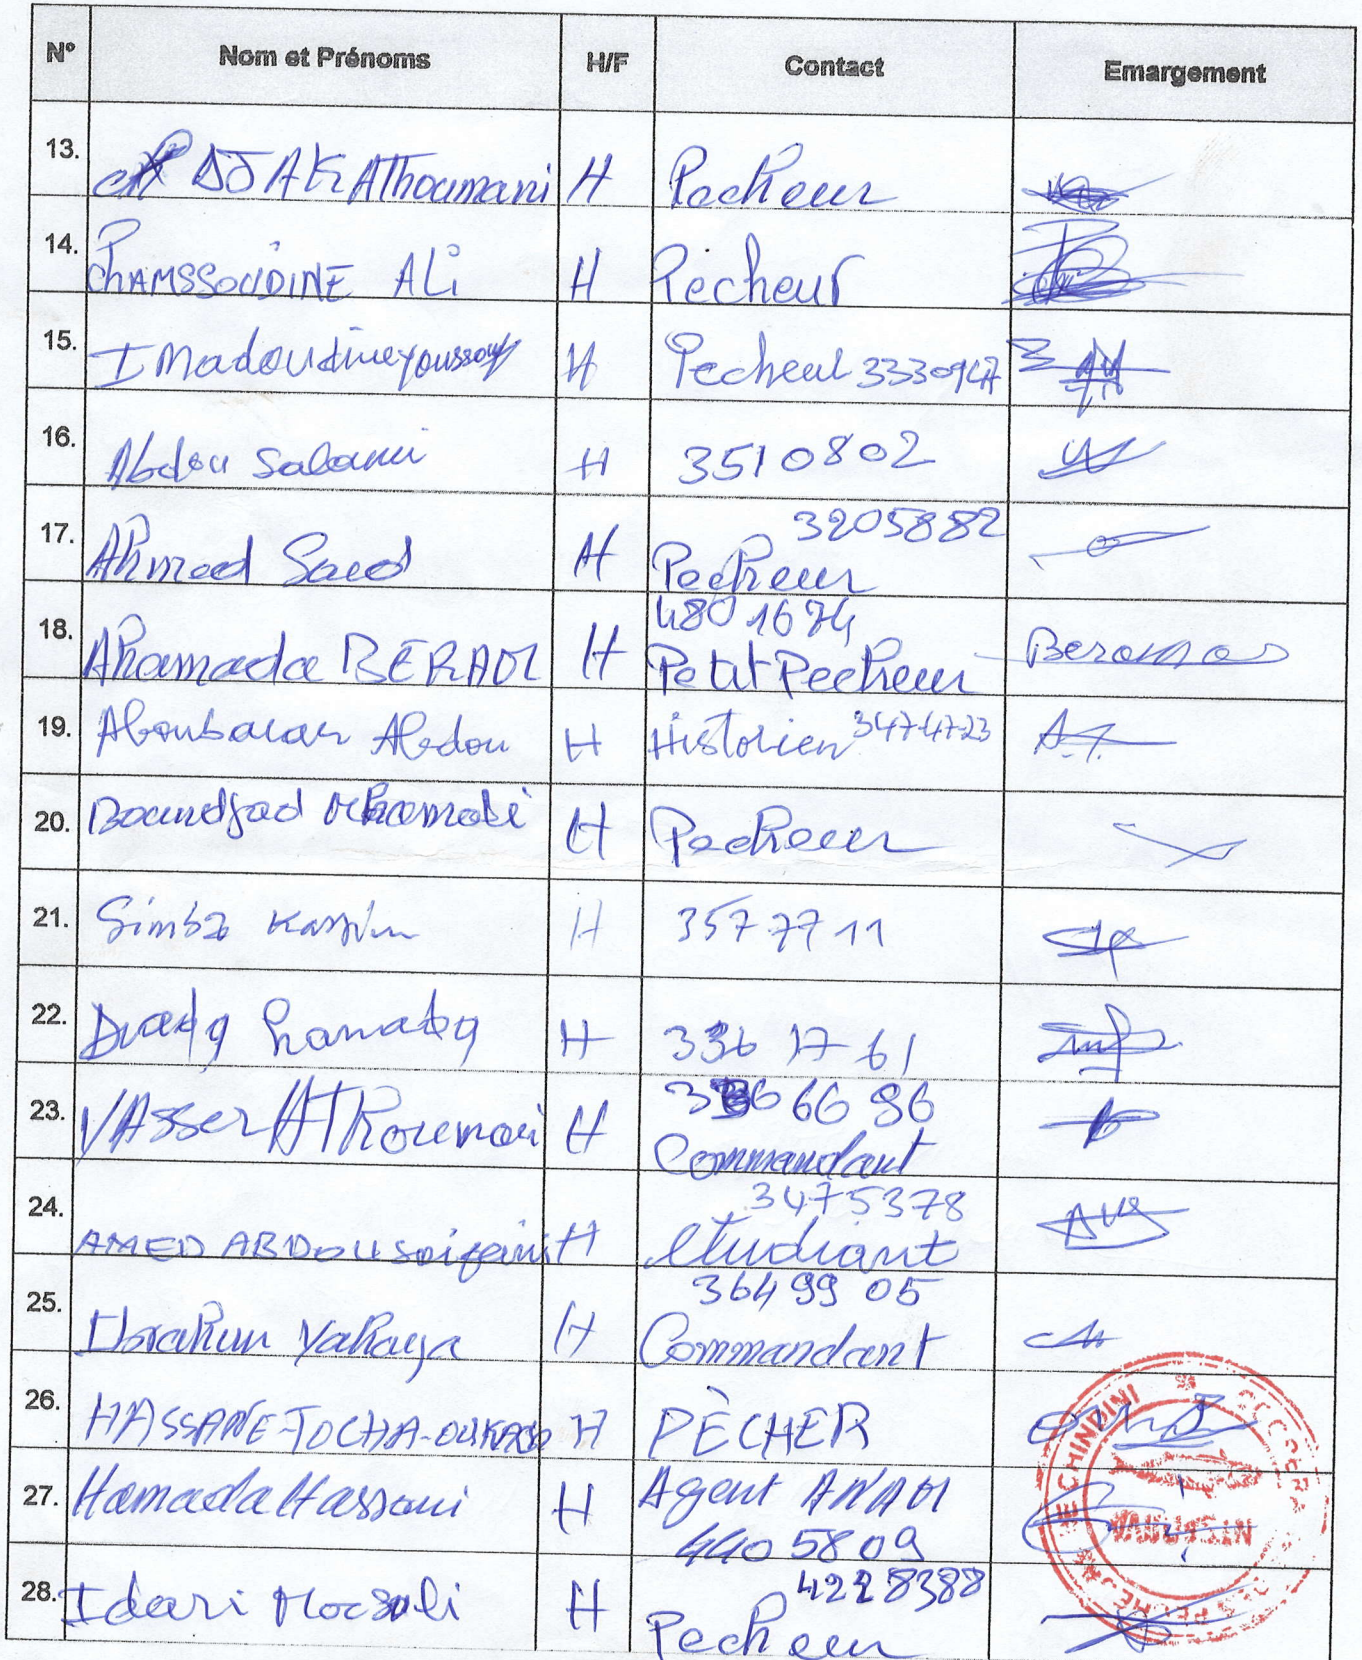 N° Nom et Prénoms H/F Contact Emargement
13. DJAK AThoumani H Pecheur
14. ChAMSSOUDINE ALi H Pecheur
15. IMadoudine youssouf H Pecheur 3330947
16. Abdou Salami H 3510802
17. Ahmed Saed H 3205882
Pecheur
18. Ahamada BERAOL H 4801674
Petit Pecheur
19. Aboubacar Abdou H Historien 3474723
20. Boundjad H Pecheur
21. Simba Kassim H 3577711
22. H 336 17 61
23. YAsser AThoumani H 66 96
Commandant
24. AMED ABDOU H 3475378
etudiant
25. Ibrahim Yahaya H 3649905
Commandant
26. HASSANE-TOCHA- H PÈCHER
27. Hamada Hassani H Agent
4405809
28. Idari H 4228388
Pecheur